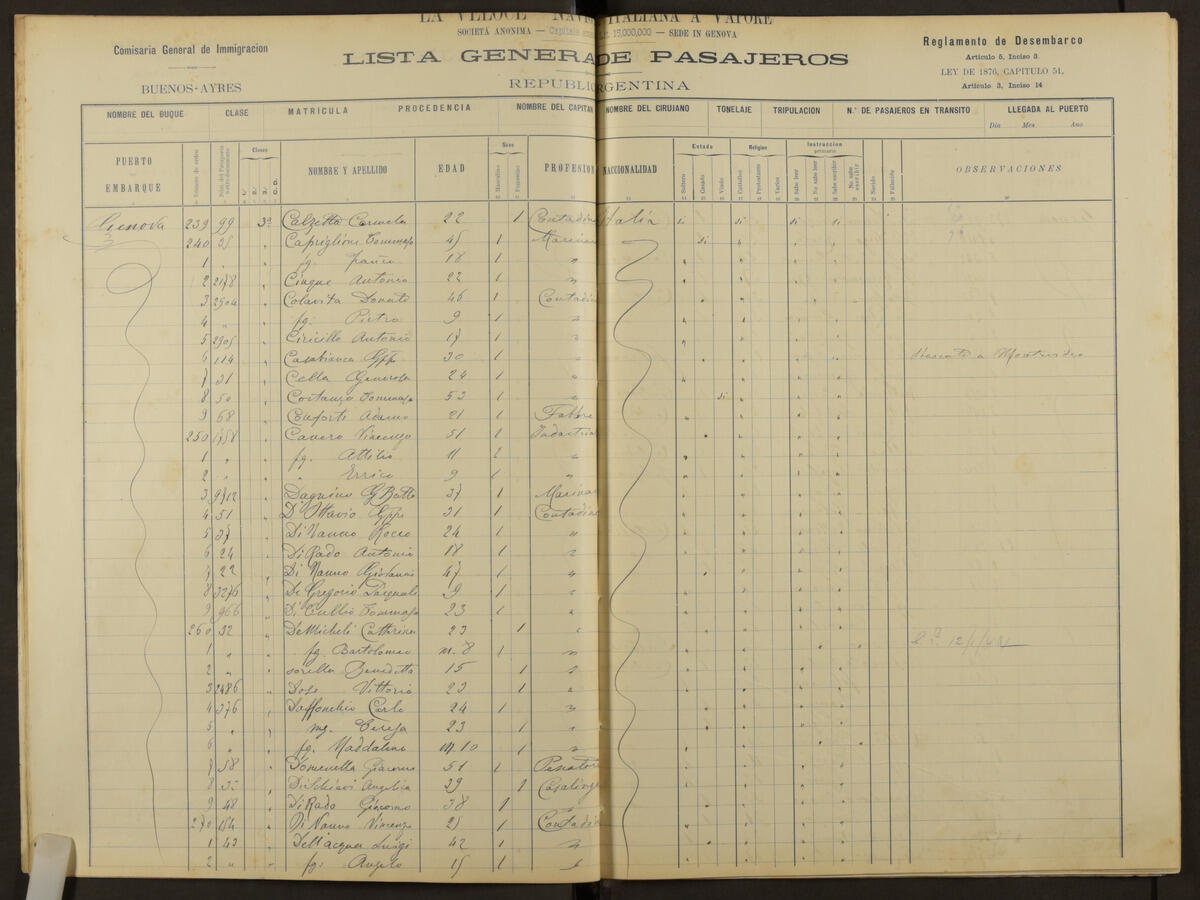 LA VELOCE NAVI ITALIANA A VAPORE
SOCIETÁ ANONIMA — Capitale 15,000,000 — SEDE IN GENOVA
Comisaria General de Immigracion
BUENOS-AYRES
LISTA GENERA DE PASAJEROS
REPUBLI RGENTINA
Reglamento de Desembarco
Articulo 5, Inciso 3.
LEY DE 1876, CAPITULO 51,
Articulo 3, Inciso 14
NOMBRE DEL BUQUE CLASE MATRICULA PROCEDENCIA NOMBRE DEL CAPITAN NOMBRE DEL CIRUJANO TONELAJE TRIPULACION N.º DE PASAJEROS EN TRANSITO LLEGADA AL PUERTO
Dia Mes Ano
PUERTO EMBARQUE Número de orden Clases NOMBRE Y APELLIDO EDAD Sexo Masculino Femenino PROFESION NACCIONALIDAD Estado Soltero Casado Viudo Religion Catolico Protestante Varios Instruccion primaria Sabe leer No sabe leer Sabe escribir No sabe escribir Nacido Fallecido OBSERVACIONES
Genova 239 99 3a Calzetta Carmela 22 1 Contadina Italia si si si si
240 35 Capriglione Tommaso 45 1 Marinaio si
1 " fg. 18 1 "
2 2178 Cinque Antonio 22 1 "
3 2904 Colavita Donato 46 1 Contadino
4 " fg. Pietro 9 1 "
5 2905 Ciricillo Antonio 17 1 "
6 114 Casabianca Gpp 30 1 " Montevideo
7 31 Cella Generosa 24 1 "
8 50 Costanzo Tommaso 53 1 " si
9 68 Conforti Adamo 21 1 Fabbro
250 1758 Canero Vincenzo 51 1 Industria
1 " fg. Attilio 11 2 "
2 " " Errico 9 1 "
3 9712 Daquino G Batta 37 1 Marinaio
4 51 D'Ottavio Gppe 31 1 Contadino
5 37 Di Nanno Rocco 24 1 "
6 24 Di Rado Antonio 18 1 "
7 22 Di Nanno Giovanni 47 1 "
8 3276 De Gregorio Pasquale 9 1 "
9 966 Di Tommaso 23 1 "
260 32 De Micheli Catterina 23 1 "
1 " fg. Bartolomeo m. 8 1 "
2 " sorella Benedetta 15 1 "
3 2486 Vittorio 23 1 "
4 376 Daffonchio Carlo 24 1 "
5 " mg. Teresa 23 1 "
6 " fg. Maddalena m. 10 1 "
7 58 Domenella Giacomo 51 1
8 Angelica 29 1 Casalinga
9 48 Di Rado Giacomo 38 1
270 154 Di Nanno Vincenzo 25 1 Contadino
1 43 Dell'acqua Luigi 42 1 "
2 " fg. Angelo 15 1 "